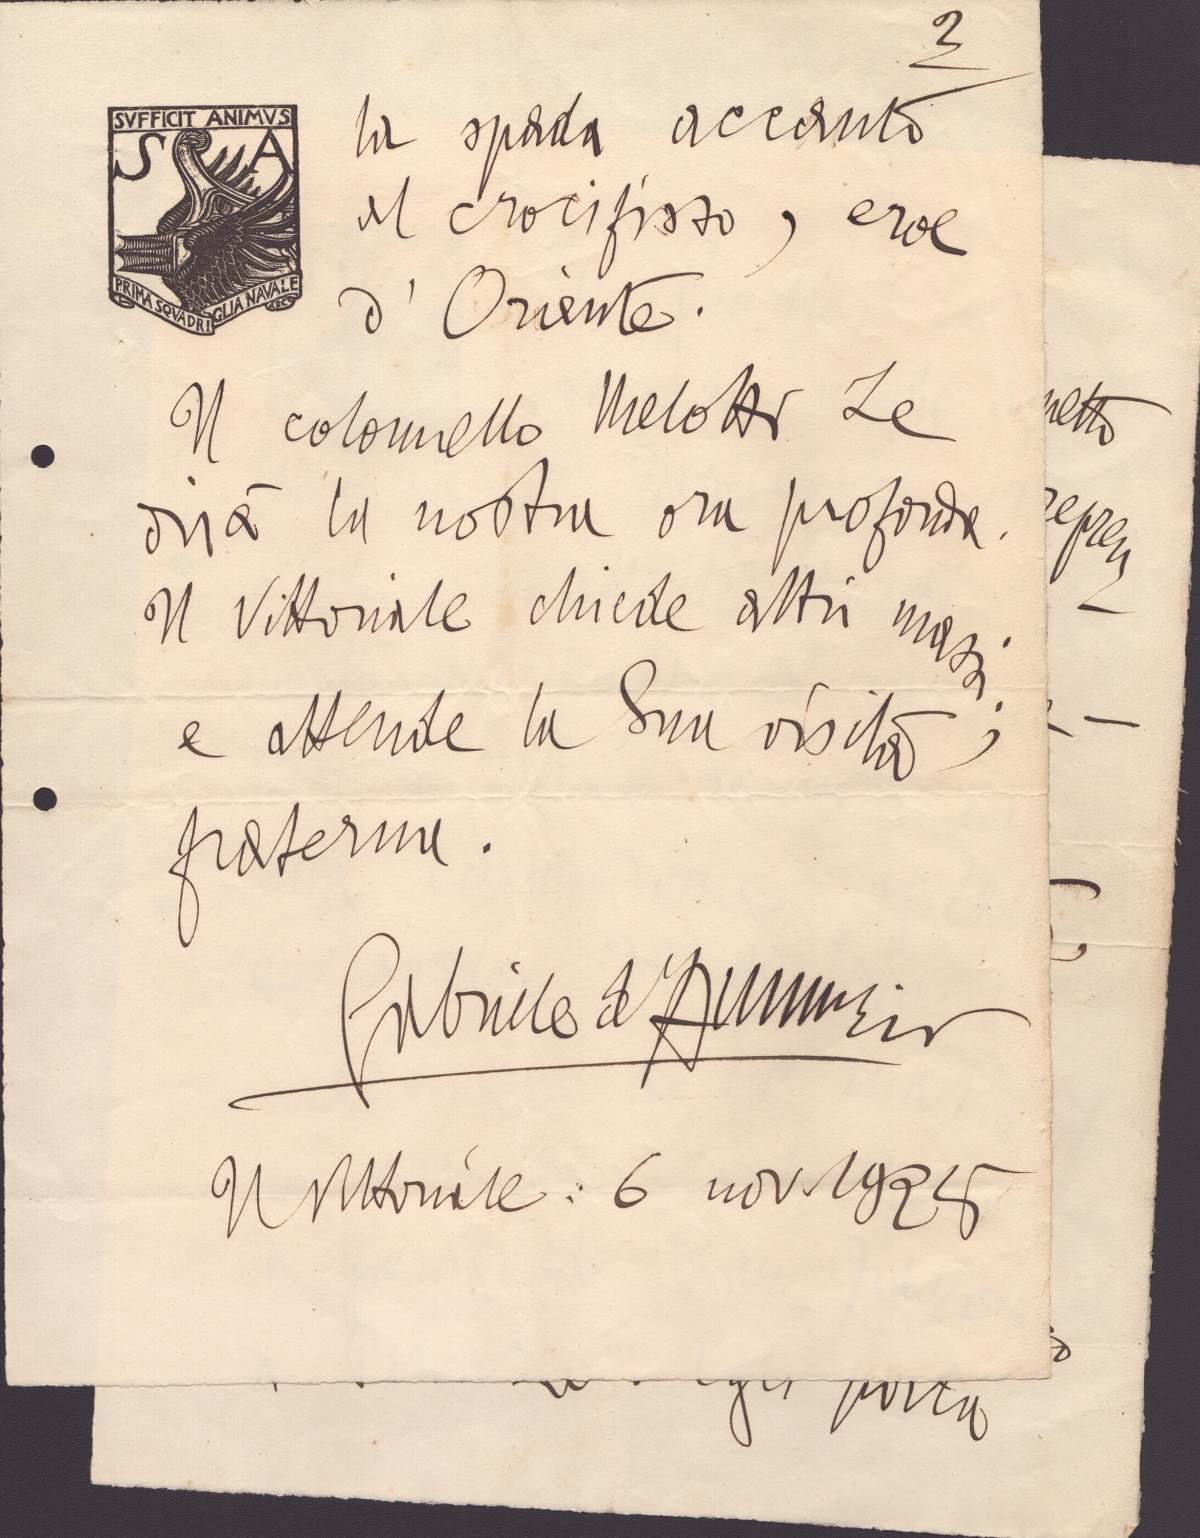 2
SVFFICIT ANIMVS
S A
PRIMA SQVADRIGLIA NAVALE
la spada accanto
al crocifisso, eroe
d'Oriente.
Il colonnello Melotti Le
dirà la nostra ora profonda.
Il Vittoriale chiede altri
e attende la Sua visita,
fraterna.
Gabriele d'Annunzio
Il Vittoriale: 6 nov. 1925
netto
porta